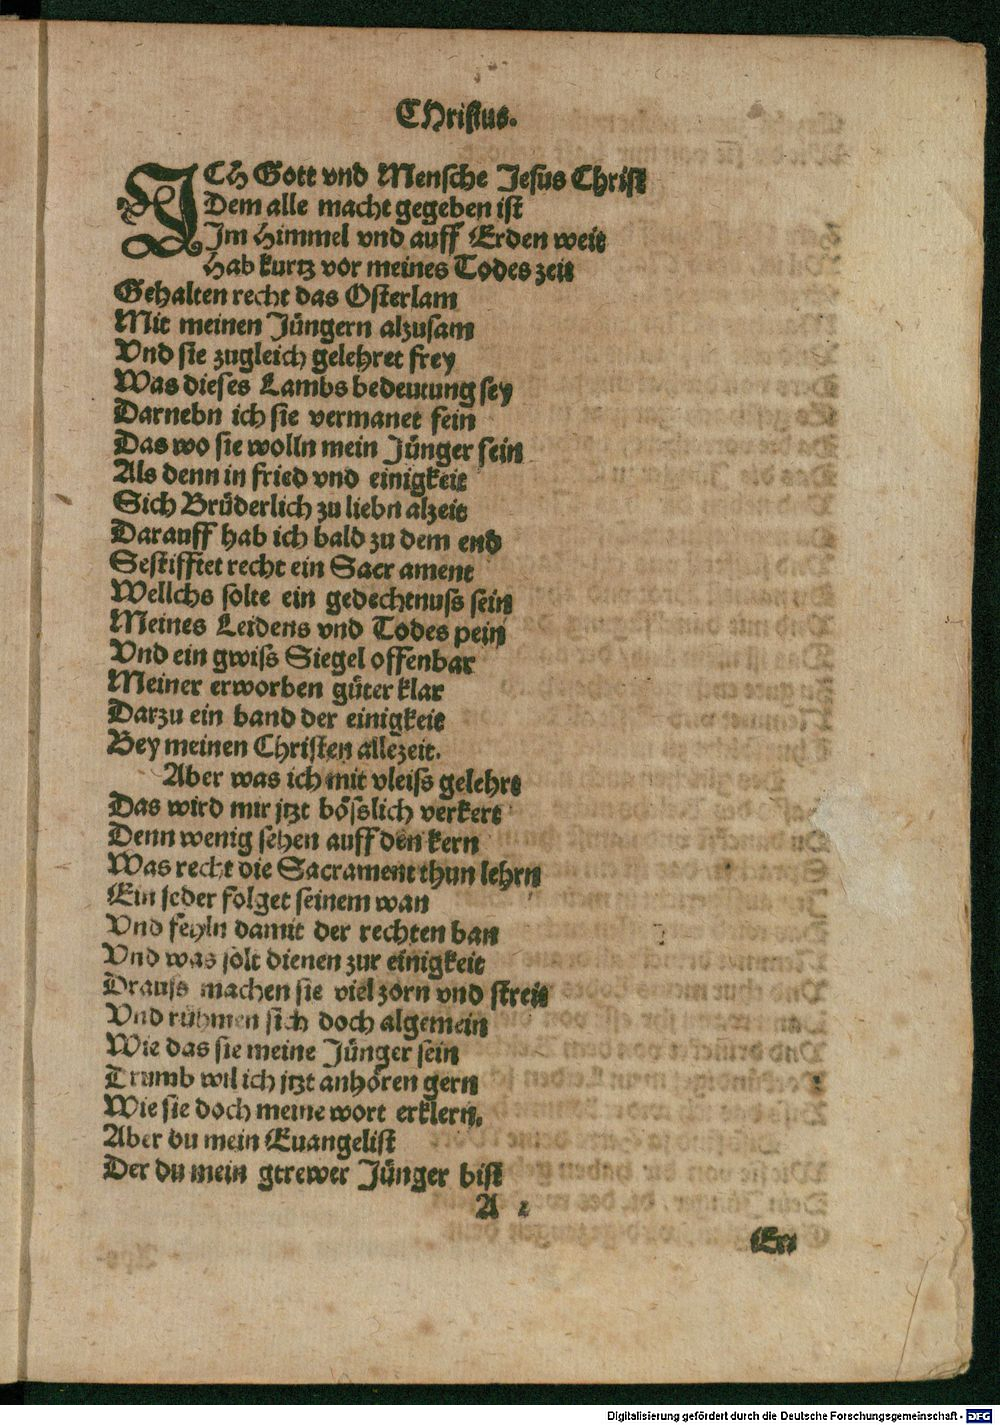 CHristus.
ICH Gott vnd Mensche Jesus Christ
Dem alle macht gegeben ist
Im Himmel vnd auff Erden weit
Hab kurtz vor meines Todes zeit
Gehalten recht das Osterlam
Mit meinen Jüngern alzusam
Vnd sie zugleich gelehret frey
Was dieses Lambs bedeutung sey
Darnebn ich sie vermanet fein
Das wo sie wolln mein Jünger sein
Als denn in fried vnd einigkeit
Sich Brüderlich zu liebn alzeit
Darauff hab ich bald zu dem end
Gestifftet recht ein Sacrament
Wellchs solte ein gedechtnuss sein
Meines Leidens vnd Todes pein
Vnd ein gwiss Siegel offenbar
Meiner erworben güter klar
Darzu ein band der einigkeit
Bey meinen Christen allezeit.
Aber was ich mit vleiss gelehrt
Das wird mir jtzt bösslich verkert
Denn wenig sehen auff den kern
Was recht die Sacrament thun lehrn
Ein jeder folget seinem wan
Vnd feyln damit der rechten ban
Vnd was solt dienen zur einigkeit
Drauss machen sie viel zorn vnd streit
Vnd rühmen sich doch algemein
Wie das sie meine Jünger sein
Trumb wil ich jtzt anhören gern
Wie sie doch meine wort erklern.
Aber du mein Euangelist
Der du mein gtrewer Jünger bist
A
Er
Digitalisierung gefördert durch die Deutsche Forschungsgemeinschaft - DFG